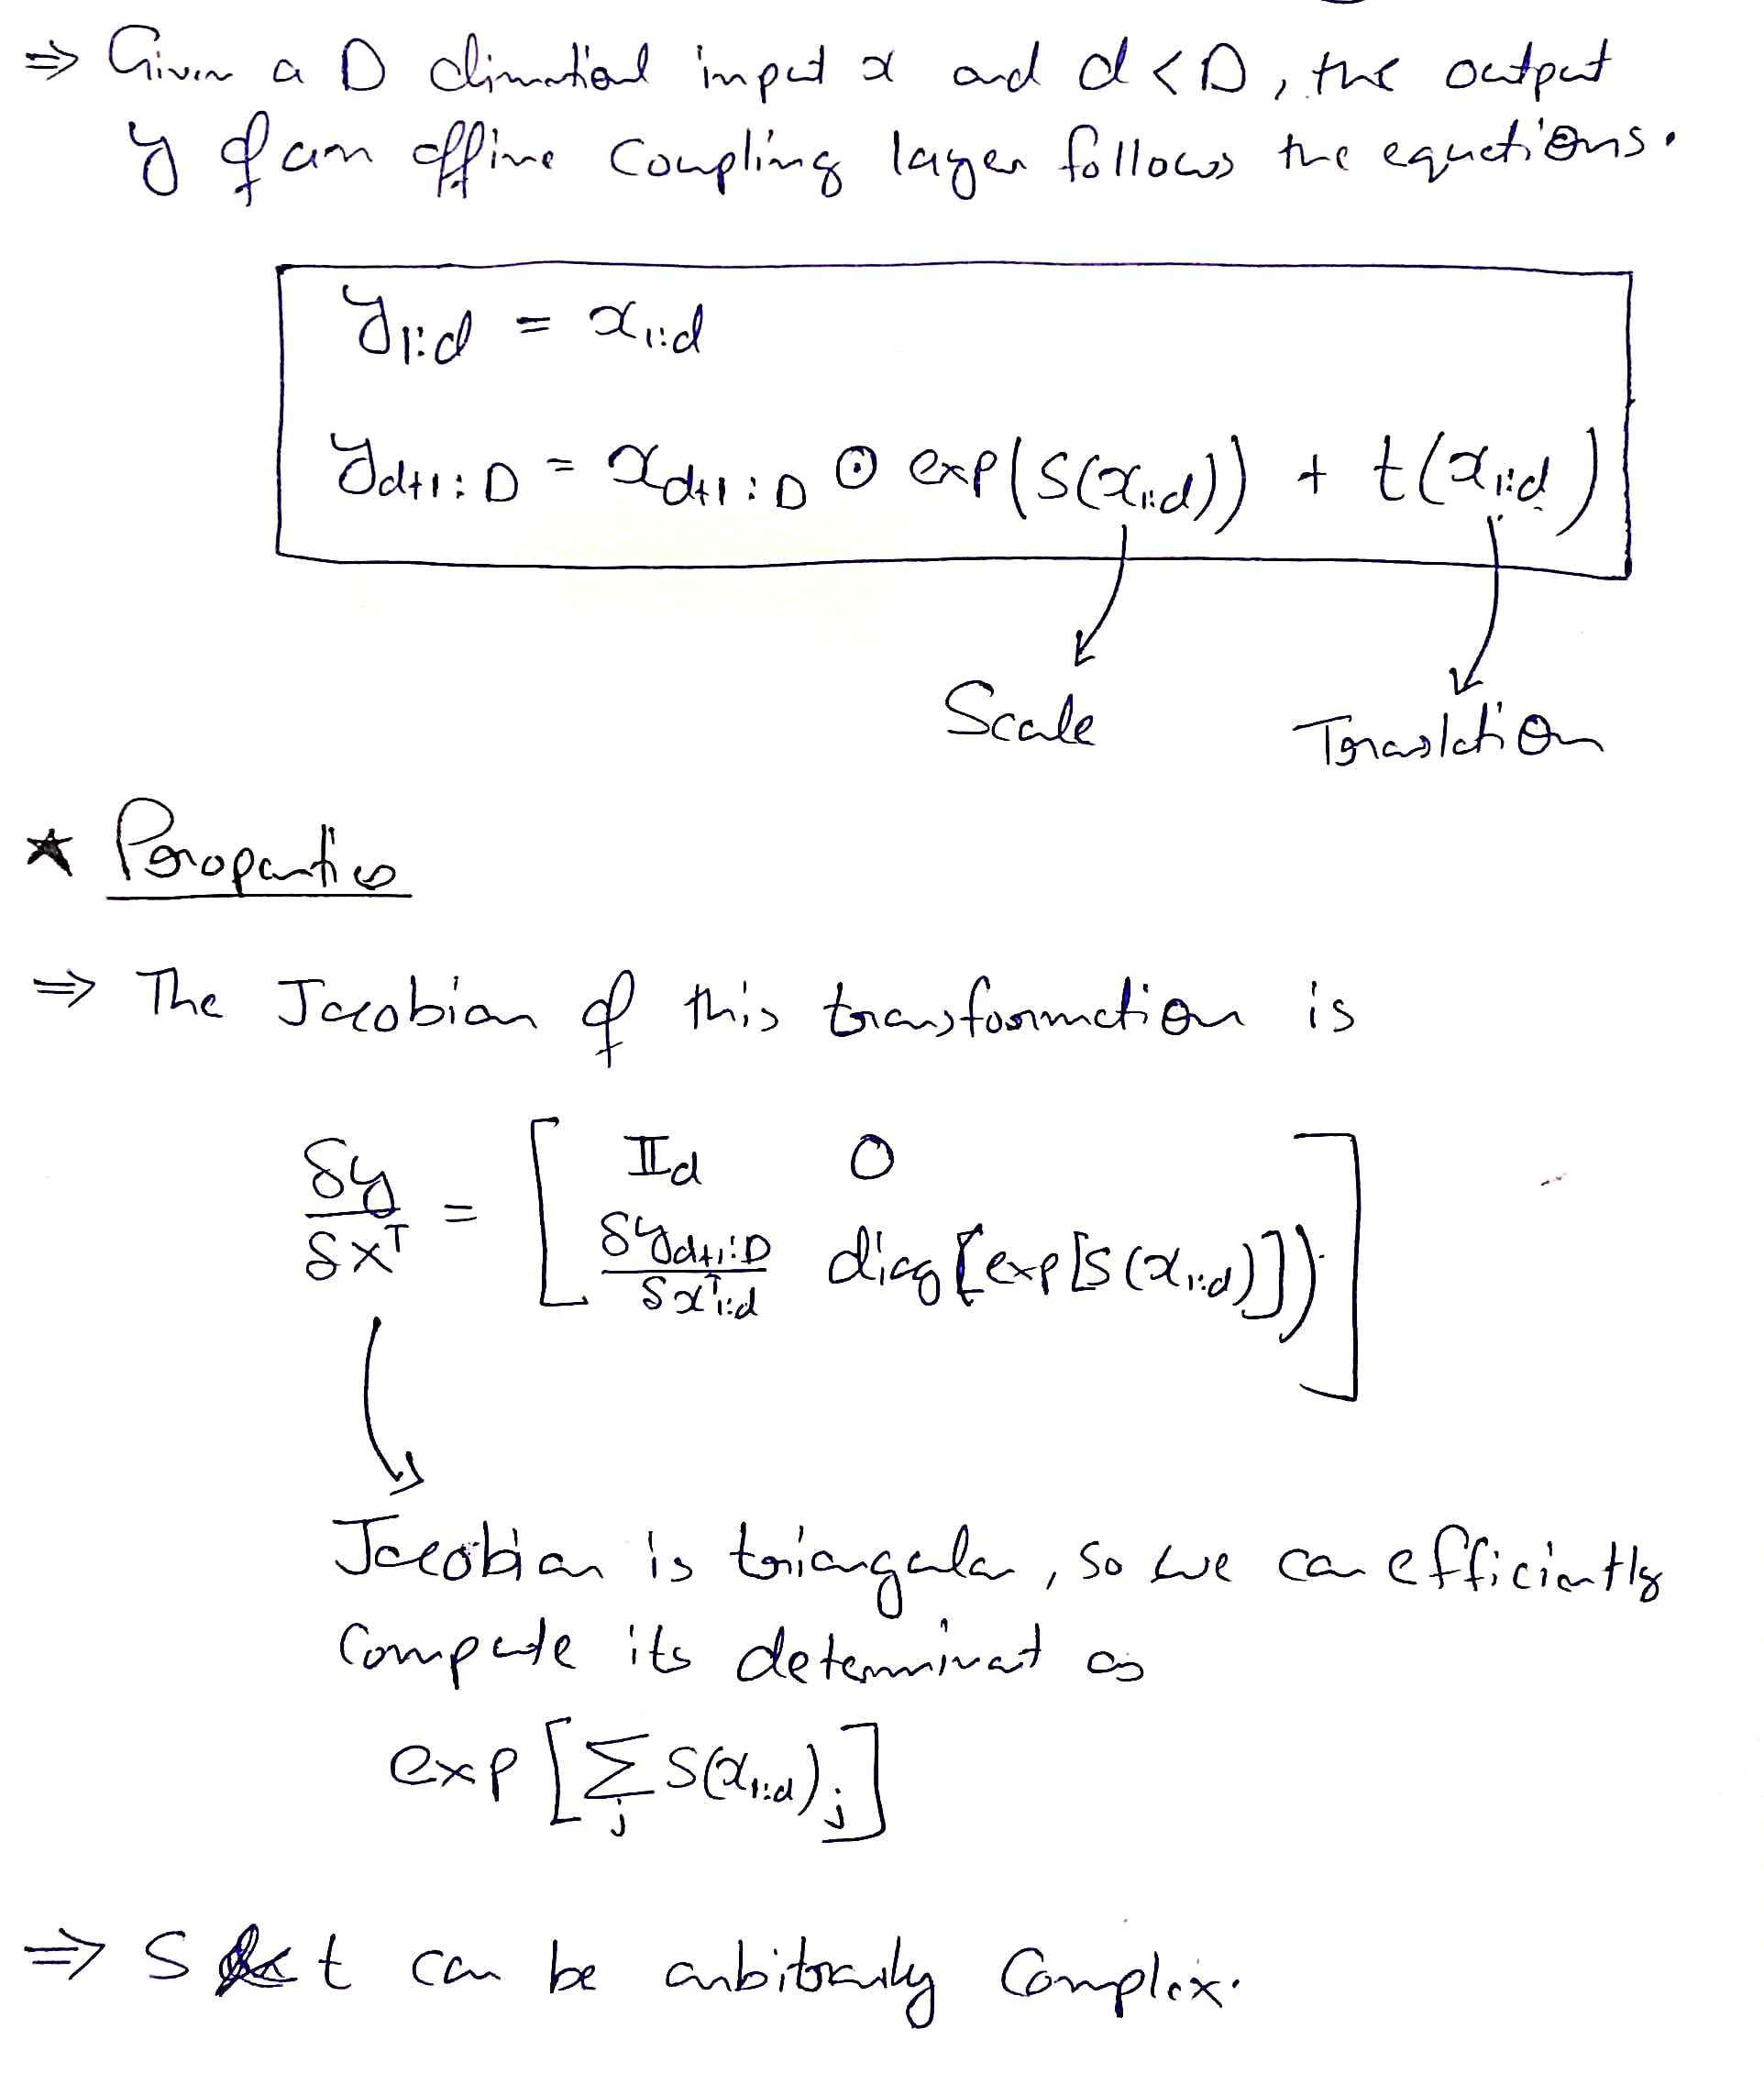 ⇒ Given a D dimentional input x and d < D, the output
y of an affine coupling layer follows the equations.
y₁:d = x₁:d
y_{d+1:D} = x_{d+1:D} ⊙ exp(s(x₁:d)) + t(x₁:d)
Scale Translation
★ Properties
⇒ The Jacobian of this transformation is
δy/δx^T = [ 𝕀d 0
δy_{d+1:D}/δx^T₁:d diag[exp[s(x₁:d)]) ]
Jacobian is triangular, so we can efficiently
compute its determinat as
exp[∑_j s(x₁:d)_j]
⇒ S & t can be arbitrarily complex.